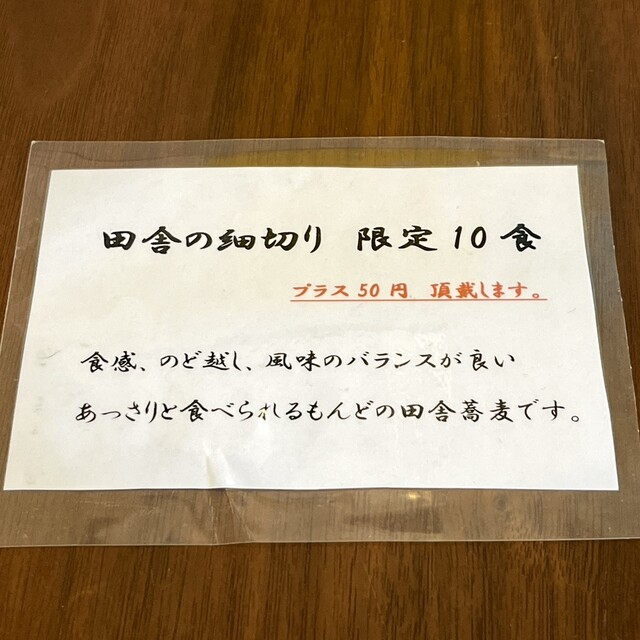 田舎の細切り 限定10食
プラス50円 頂戴します。
食感、のど越し、風味のバランスが良い
あっさりと食べられるもんどの田舎蕎麦です。